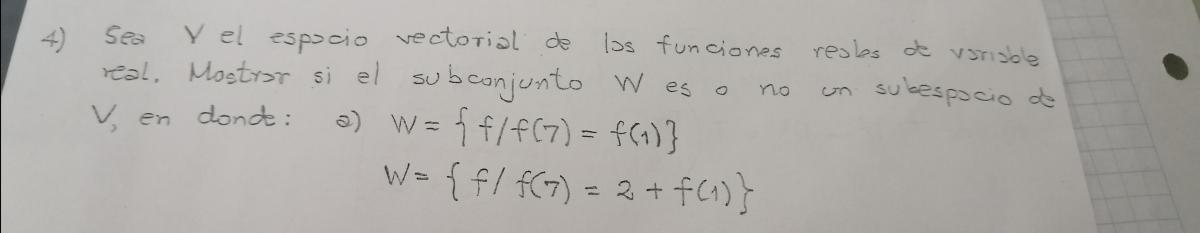 4) Sea V el espacio vectorial de las funciones reales de variable
real. Mostrar si el subconjunto W es o no un subespacio de
V, en donde: a) W = { f / f(7) = f(1)}
W = { f / f(7) = 2 + f(1)}